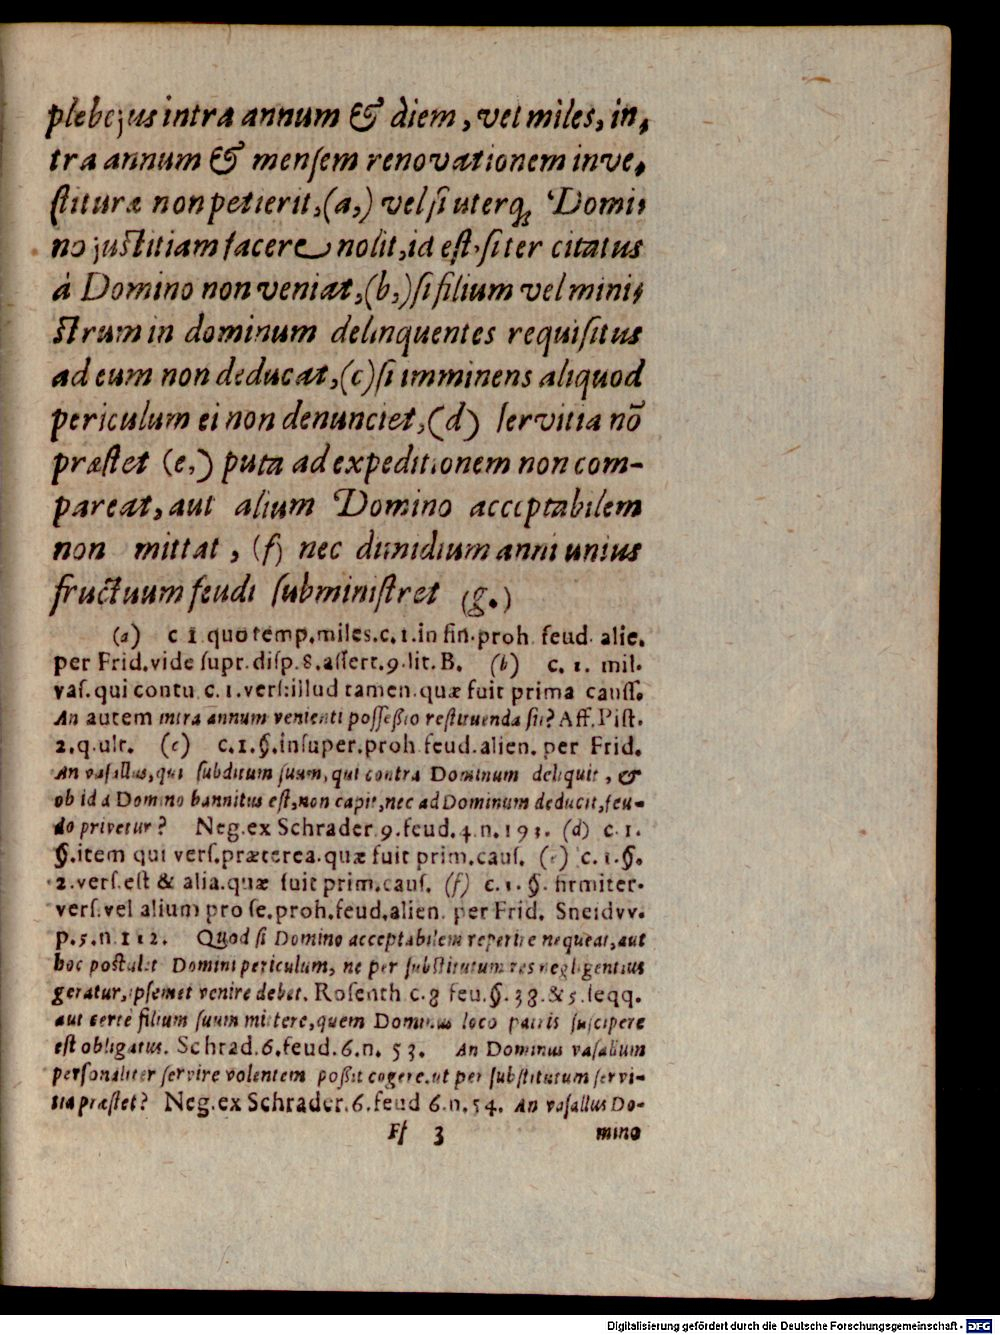 plebejus intra annum & diem, vel miles, in-
tra annum & mensem renovationem inve-
stituræ non petierit,(a,) vel si uterq; Domi-
no justitiam facere nolit, id est, si ter citatus
à Domino non veniat,(b,) si filium vel mini-
strum in dominum delinquentes requisitus
ad eum non deducat,(c) si imminens aliquod
periculum ei non denunciet,(d) servitia nō
præstet (e,) puta ad expeditionem non com-
pareat, aut alium Domino acceptabilem
non mittat, (f) nec dimidium anni unius
fructuum feudi subministret (g.)
(a) c 1 quo temp.miles.c.1.in fin.proh feud. alie.
per Frid.vide supr.disp.8.assert.9.lit.B. (b) c. 1. mil.
vas.qui contu c.1.vers:illud tamen.quæ fuit prima causs.
An autem intra annum venienti possessio restituenda sit? Aff.Pist.
2.q.ult. (c) c.1.§.insuper.proh feud.alien. per Frid.
An vasallus, qui subditum suum, qui contra Dominum deliquit, &
ob id à Domino bannitus est, non capit, nec ad Dominum deducit, feu-
do privetur? Neg.ex Schrader 9.feud.4.n.193. (d) c.1.
§.item qui vers.præterea.quæ fuit prim.caus. (e) c.1.§.
2.vers.est & alia.quæ fuit prim.caus. (f) c.1.§. firmiter.
vers.vel alium pro se.proh.feud.alien. per Frid. Sneidvv.
p.5.n.112. Quod si Domino acceptabilem reperire nequeat, aut
hoc postulet Domini periculum, ne per substitutum res negligentius
geratur, ipsemet venire debet. Rosenth c.8 feu.§.38.&5.seqq.
aut certè filium suum mittere, quem Dominus loco patris suscipere
est obligatus. Schrad.6.feud.6.n. 53. An Dominus vasallum
personaliter servire volentem possit cogere.ut per substitutum servi-
tia præstet? Neg.ex Schrader.6.feud 6.n.54. An vasallus Do-
Ff 3 mino
Digitalisierung gefördert durch die Deutsche Forschungsgemeinschaft - DFG